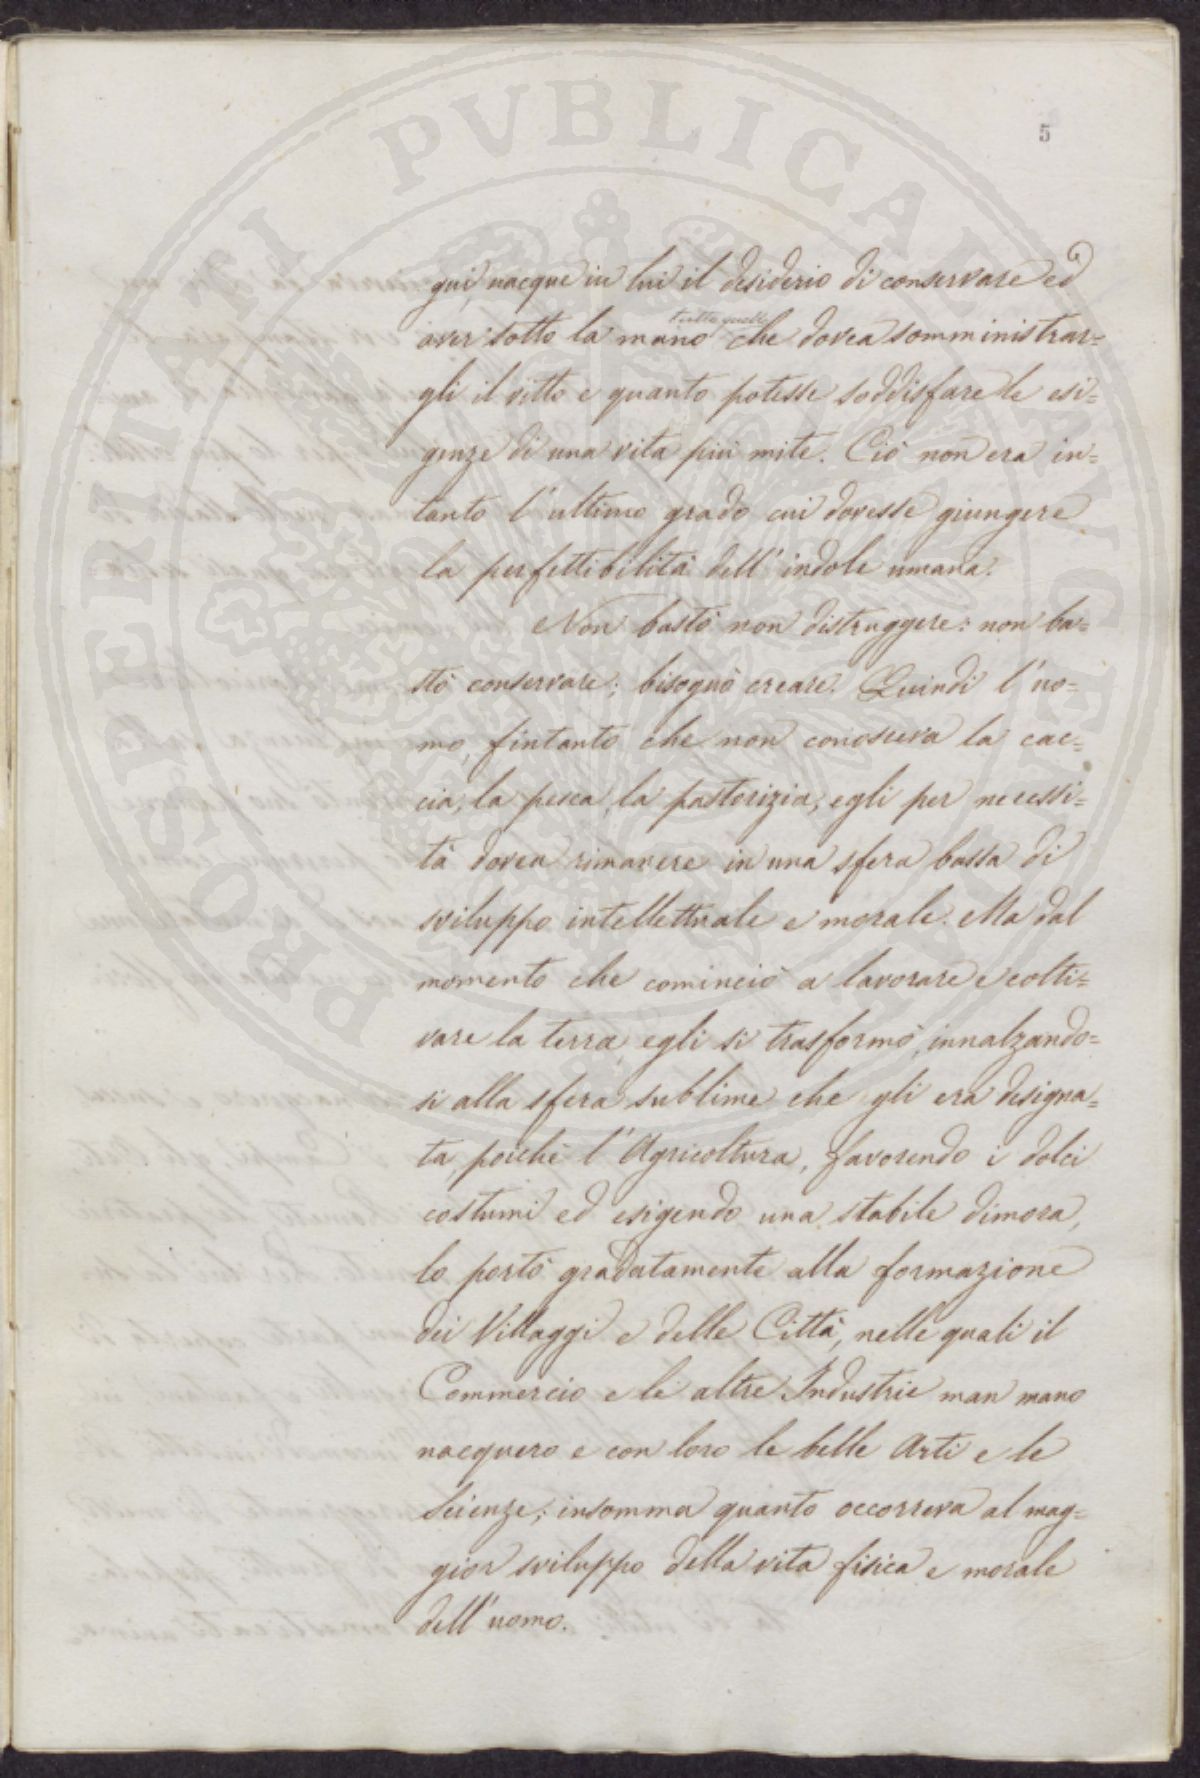 5
gui, nacque in lui il desiderio di conservare ed
tutto quello
aver sotto la mano che dovea somministrar=
gli il vitto e quanto potesse soddisfare le esi=
genze di una vita più mite. Ciò non era in=
tanto l'ultimo grado cui dovesse giungere
la perfettibilità dell'indole umana.
Non bastò non distruggere: non ba=
stò conservare; bisognò creare. Quindi l'uo=
mo, fintanto che non conosceva la cac=
cia, la pesca, la pastorizia, egli per necessi=
tà dovea rimanere in una sfera bassa di
sviluppo intellettuale e morale. Ma dal
momento che cominciò a lavorare e colti=
vare la terra egli si trasformò, innalzando=
si alla sfera sublime che gli era designa=
ta, poichè l'Agricoltura, favorendo i dolci
costumi ed esigendo una stabile dimora,
lo portò gradatamente alla formazione
dei Villaggi e delle Città, nelle quali il
Commercio e le altre Industrie man mano
nacquero e con loro le belle Arti e le
Scienze; insomma quanto occorreva al mag=
gior sviluppo della vita fisica e morale
dell'uomo.
PROSPERITATI PVBLICAE AVGENDAE